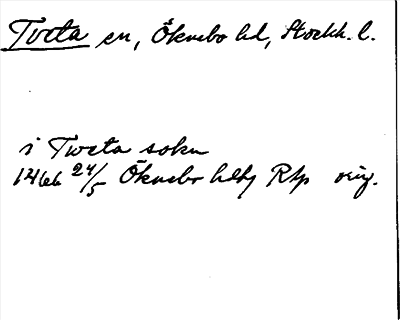 Tveta sn, Öknebo hd, Stockh. l.
i Tweta sokn
1466 24/5 Öknebo hdbf RAp orig.